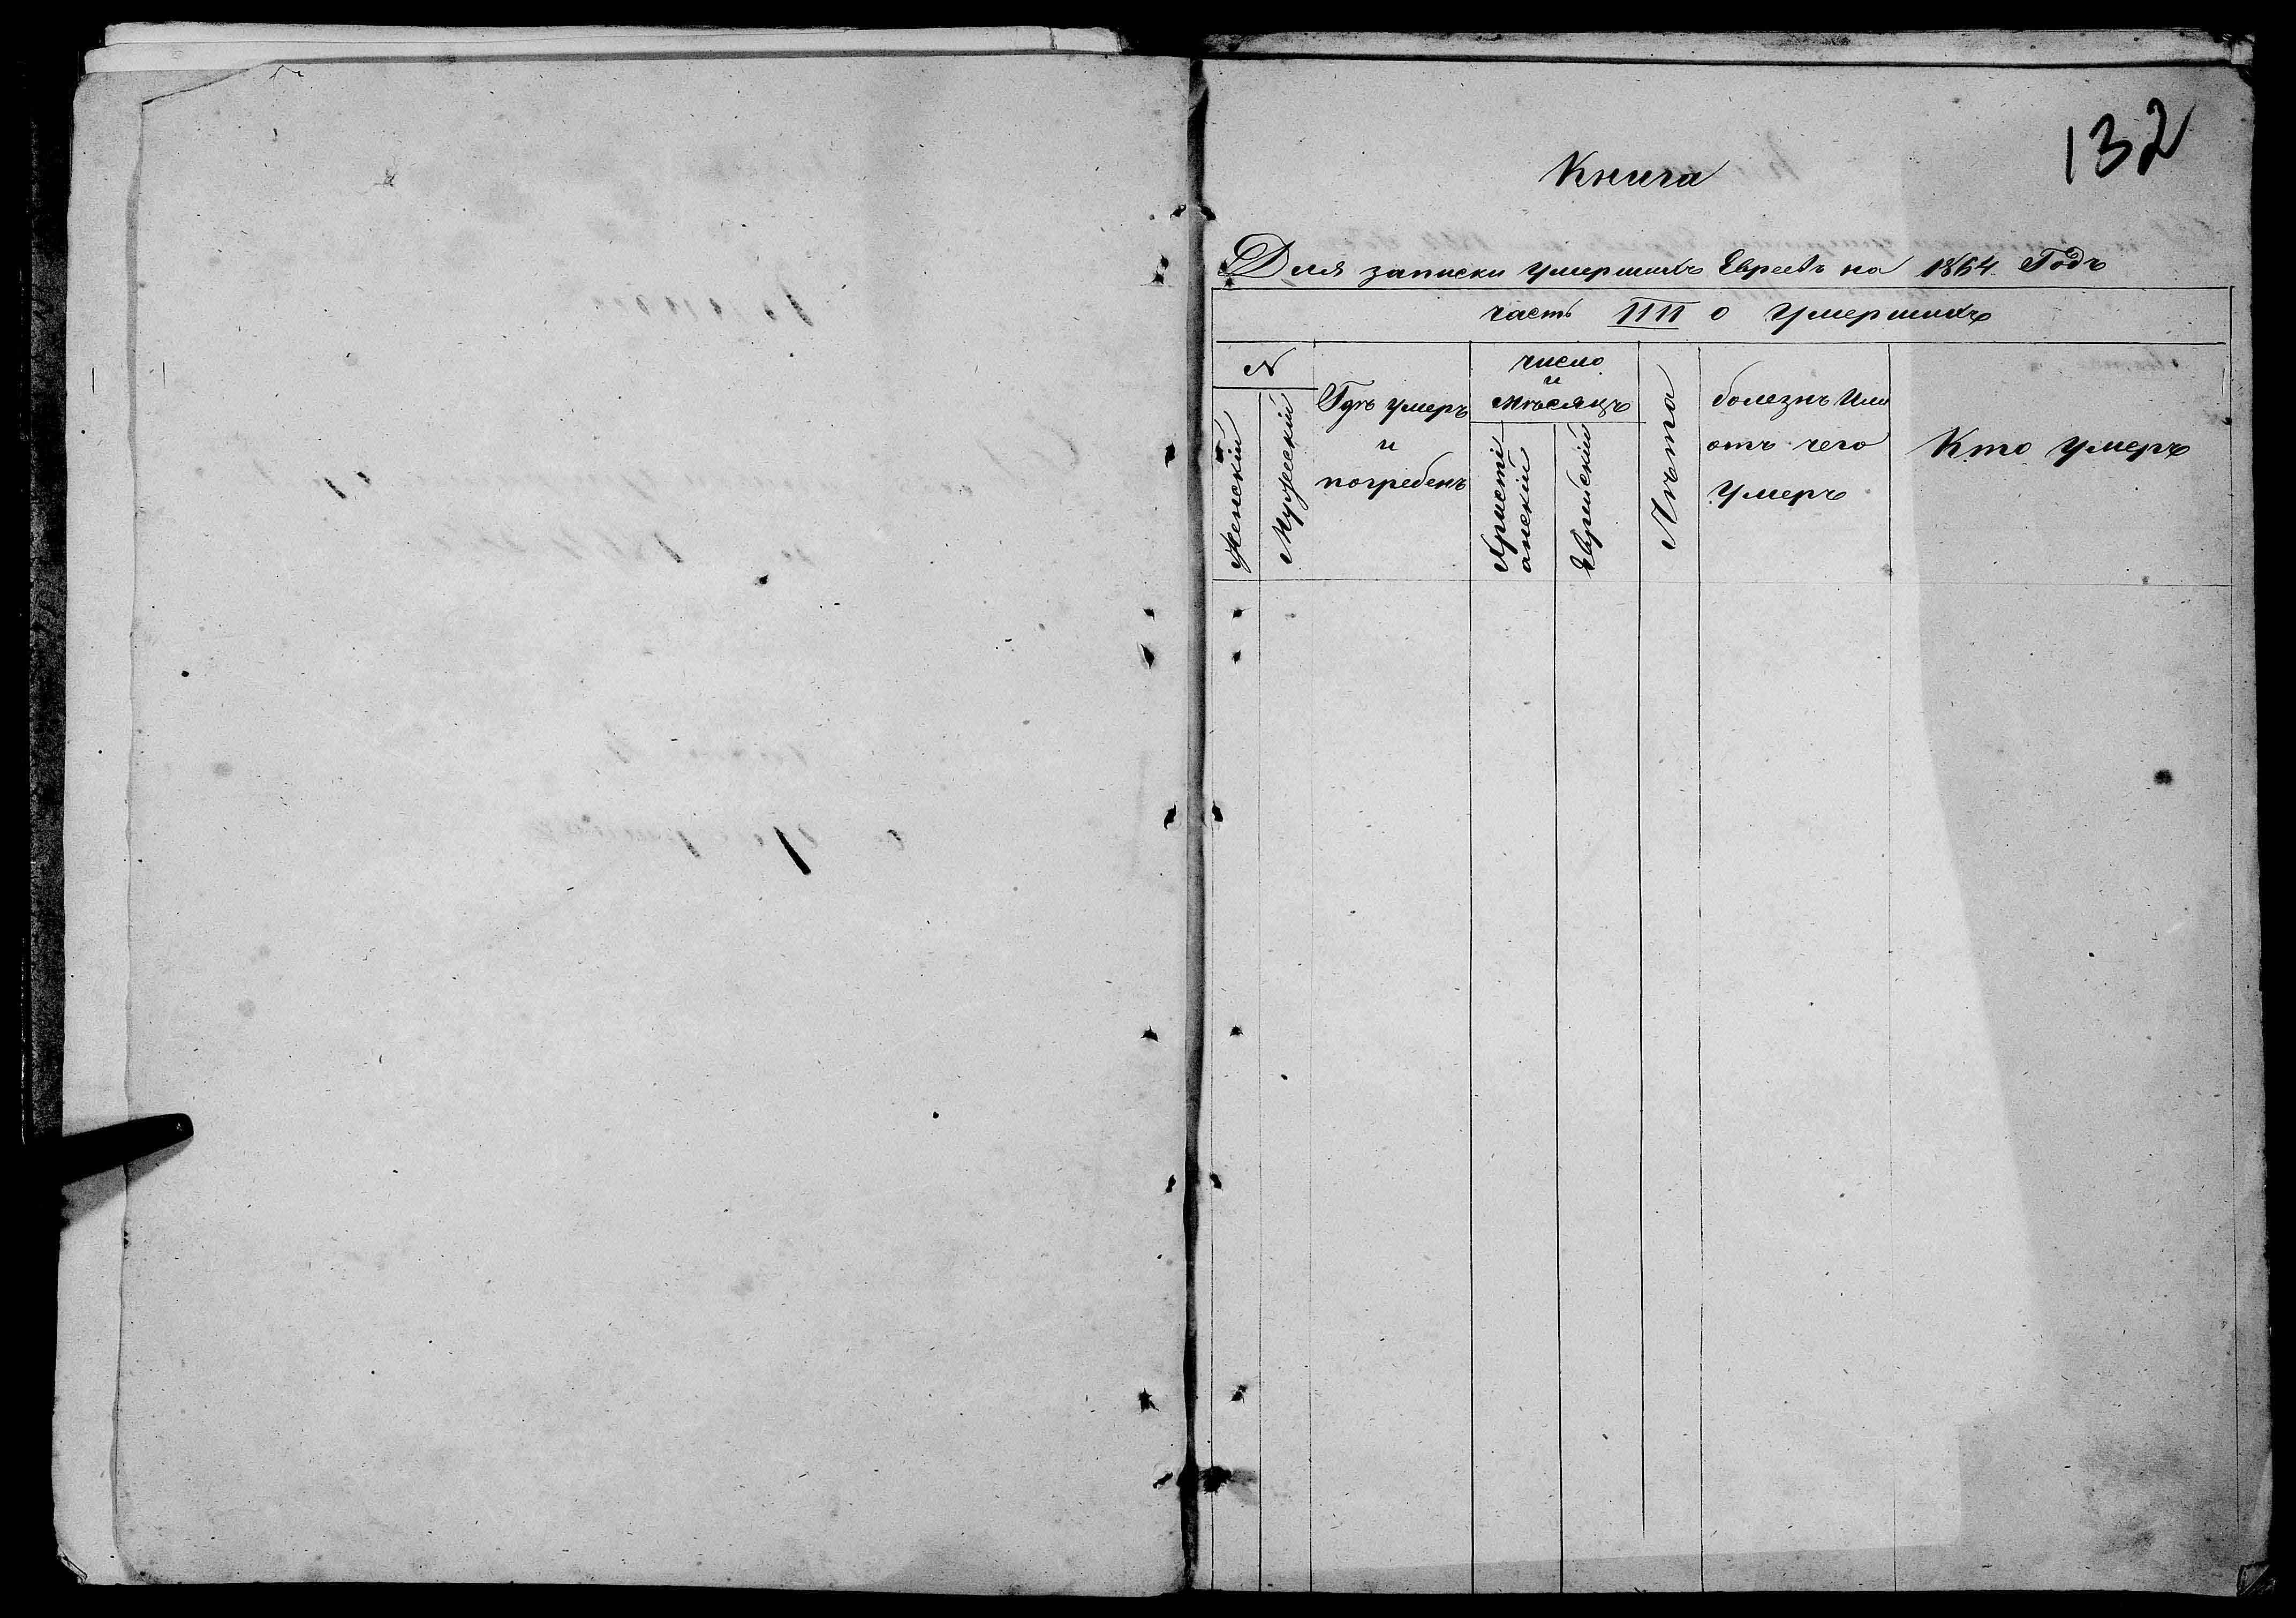 132
Книга
Для записки умершихъ Евреевъ на 1864 Годъ
часть IIII о умершихъ
N
Женскій
Мужескій
Гдѣ умеръ
и
погребенъ
число
и
мѣсяцъ
Христі
анскій
Еврейскій
Лѣта
болезнь Или
отъ чего
умеръ
Кто умеръ